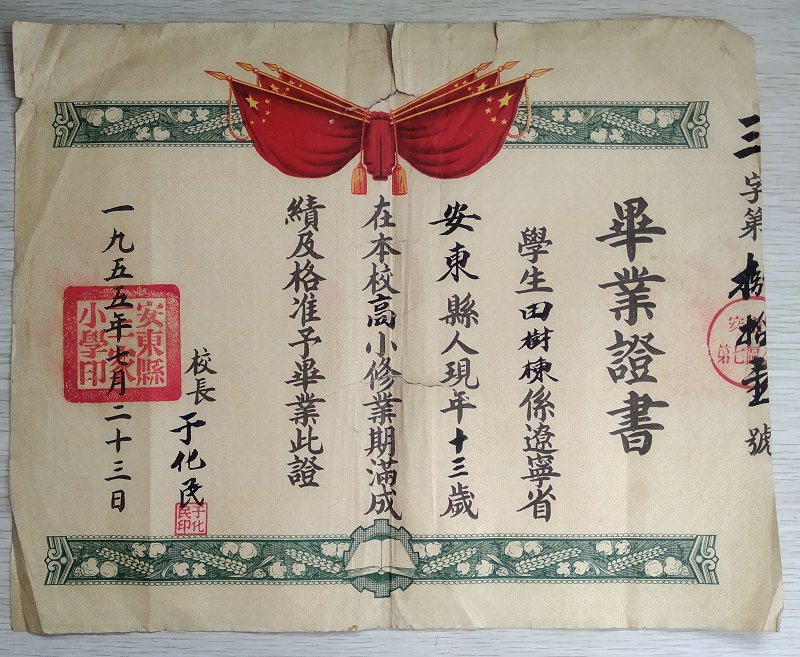 三字第拾壹號
畢業證書
學生田樹棟係遼寧省
安東縣人現年十三歲
在本校高小修業期滿成
績及格准予畢業此證
校長于化民
于化民印
一九五五年七月二十三日
安東縣
小學印